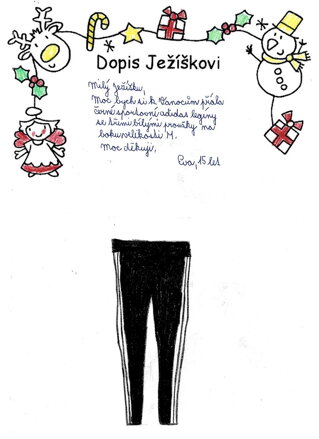 Dopis Ježíškovi
Milý Ježíšku,
Moc bych si k Vánocům přála
černé sportovní adidas legíny
se třemi bílými proužky na
boku velikosti M.
Moc děkuji,
Eva, 15 let